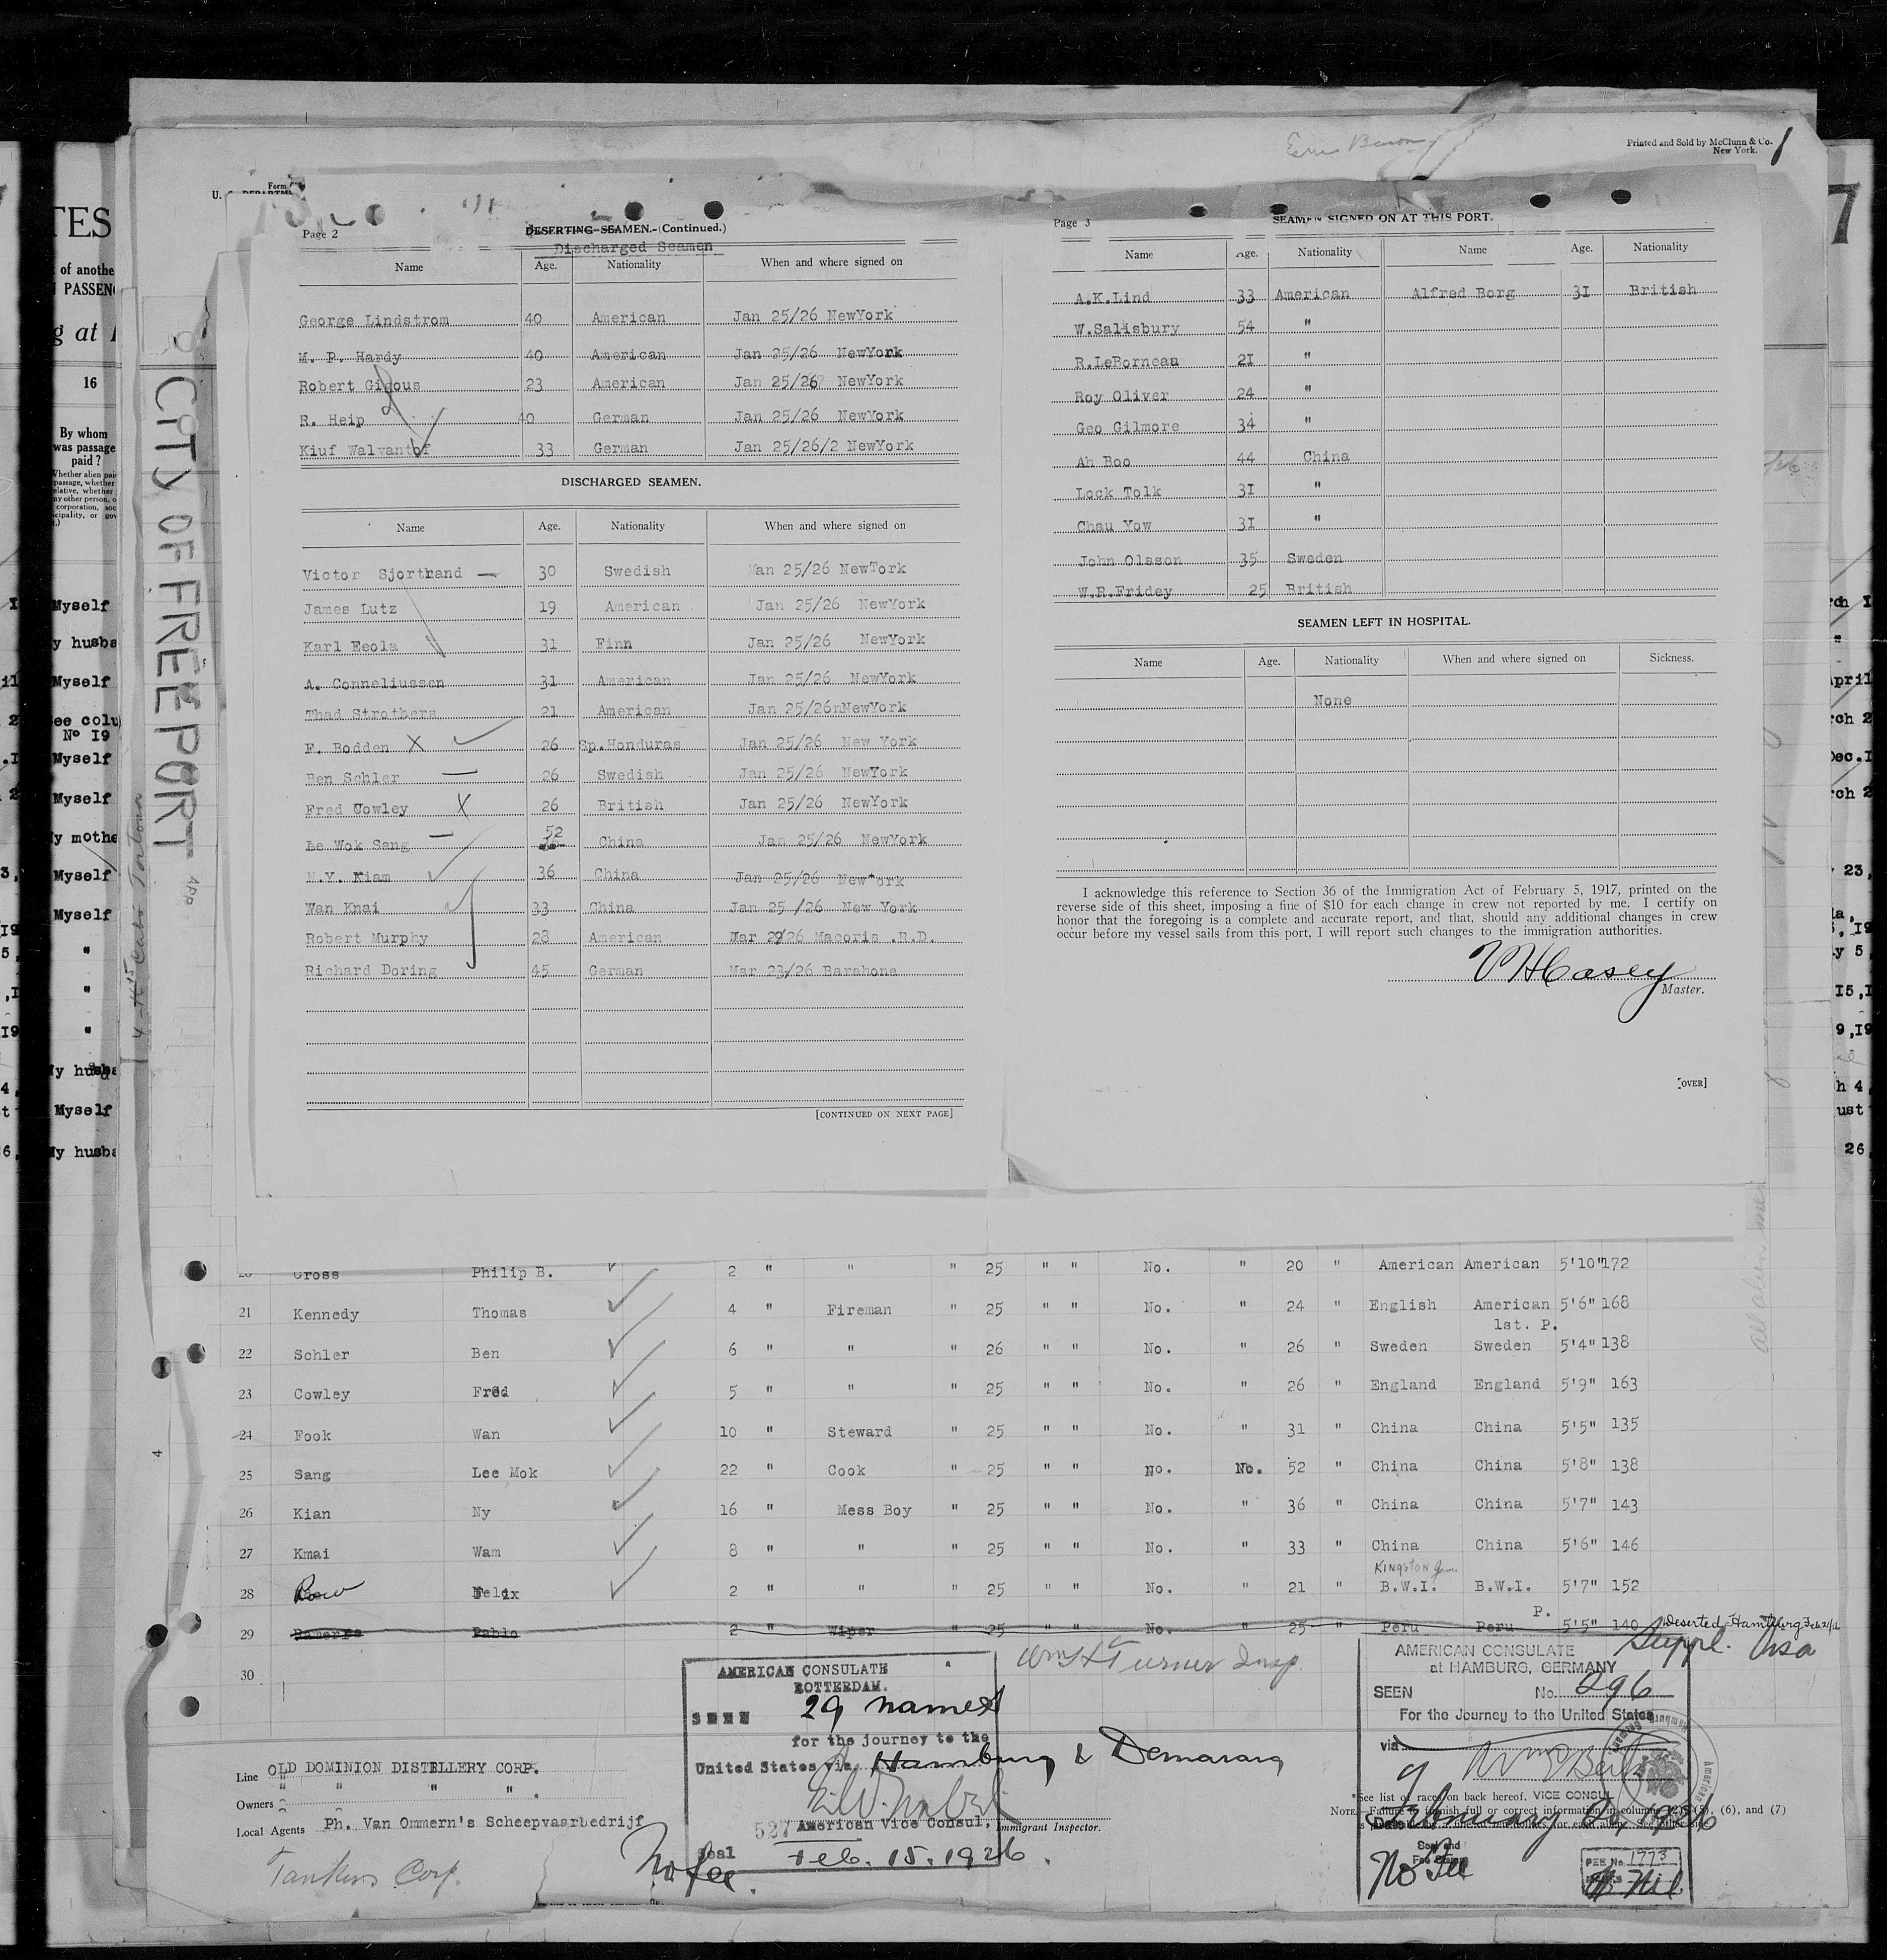 Printed and Sold by McClunn & Co.
New York.
Form
Page 2
DESERTING SEAMEN.-(Continued.)
Discharged Seamen
Name Age. Nationality When and where signed on
George Lindstrom 40 American Jan 25/26 NewYork
M. P. Hardy 40 American Jan 25/26 NewYork
Robert Gigous 23 American Jan 25/26 NewYork
R. Heip 40 German Jan 25/26 NewYork
Kiuf Walvantof 33 German Jan 25/26/2 NewYork
DISCHARGED SEAMEN.
Name Age. Nationality When and where signed on
Victor Sjortrand 30 Swedish Man 25/26 NewTork
James Lutz 19 American Jan 25/26 NewYork
Karl Eeola 31 Finn Jan 25/26 NewYork
A. Conneliussen 31 American Jan 25/26 NewYork
Thad Strothers 21 American Jan 25/26nNewYork
E. Bodden X 26 Sp.Honduras Jan 25/26 New York
Ben Schler 26 Swedish Jan 25/26 NewYork
Fred Cowley X 26 British Jan 25/26 NewYork
Le Wok Sang 52 China Jan 25/26 NewYork
N.Y. Kiam 36 China Jan 25/26 New York
Wan Knai 33 China Jan 25 /26 New York
Robert Murphy 28 American Mar 29/26 Macoris .R.D.
Richard Doring 45 German Mar 23/26 Barahona
[CONTINUED ON NEXT PAGE]
Page 3
SEAMEN SIGNED ON AT THIS PORT.
Name Age. Nationality Name Age. Nationality
A.K.Lind 33 American Alfred Borg 31 British
W.Salisbury 54 "
R.LeBorneau 21 "
Roy Oliver 24 "
Geo Gilmore 34 "
Ah Boo 44 China
Lock Tolk 31 "
Chau Yow 31 "
John Olsson 35 Sweden
W.R.Fridey 25 British
SEAMEN LEFT IN HOSPITAL.
Name Age. Nationality When and where signed on Sickness.
None
I acknowledge this reference to Section 36 of the Immigration Act of February 5, 1917, printed on the
reverse side of this sheet, imposing a fine of $10 for each change in crew not reported by me. I certify on
honor that the foregoing is a complete and accurate report, and that, should any additional changes in crew
occur before my vessel sails from this port, I will report such changes to the immigration authorities.
V H Casey
Master.
[OVER]
CITY OF FREEPORT
Gross Philip B. 2 " " " 25 " " No. " 20 " American American 5'10" 172
21 Kennedy Thomas 4 " Fireman " 25 " " No. " 24 " English American 5'6" 168
1st. P.
22 Schler Ben 6 " " " 26 " " No. " 26 " Sweden Sweden 5'4" 138
23 Cowley Fred 5 " " " 25 " " No. " 26 " England England 5'9" 163
24 Fook Wan 10 " Steward " 25 " " No. " 31 " China China 5'5" 135
25 Sang Lee Mok 22 " Cook " 25 " " No. No. 52 " China China 5'8" 138
26 Kian Ny 16 " Mess Boy " 25 " " No. " 36 " China China 5'7" 143
27 Kmai Wam 8 " " " 25 " " No. " 33 " China China 5'6" 146
Kingston Jam.
28 Row Felix 2 " " " 25 " " No. " 21 " B.W.I. B.W.I. 5'7" 152
P.
29 Pablo 2 " Wiper " 25 " " No. " 25 " Peru Peru 5'5" 140 Deserted Hamburg
30
Wm H Turner Insp.
Suppl. Visa
AMERICAN CONSULATE
ROTTERDAM.
SEEN 29 names
for the journey to the
United States via Hamburg & Demarara
American Vice Consul,
527
Seal Feb. 15. 1926.
No fee.
Immigrant Inspector.
AMERICAN CONSULATE
at HAMBURG, GERMANY
SEEN No. 296
For the Journey to the United States
via
VICE CONSUL
Date February 1926
Seal and
Fee Stamp
No Fee
FEE No. 1773
Nil
*See list of races on back hereof.
NOTE.—Failure to furnish full or correct information in columns (2), (5), (6), and (7)
Line OLD DOMINION DISTILLERY CORP.
Owners " " " "
Local Agents Ph. Van Ommern's Scheepvaarbedrijf
Tankers Corp.
TES
of anothe
PASSEN
g at
16
By whom
was passage
paid?
Myself
y husba
Myself
ee colu
No 19
Myself
Myself
y mothe
Myself
Myself
"
"
"
y husba
Myself
y husba
7
April
rch 2
Dec.1
rch 2
23,
15,1
9,19
h 4,
ust
26,